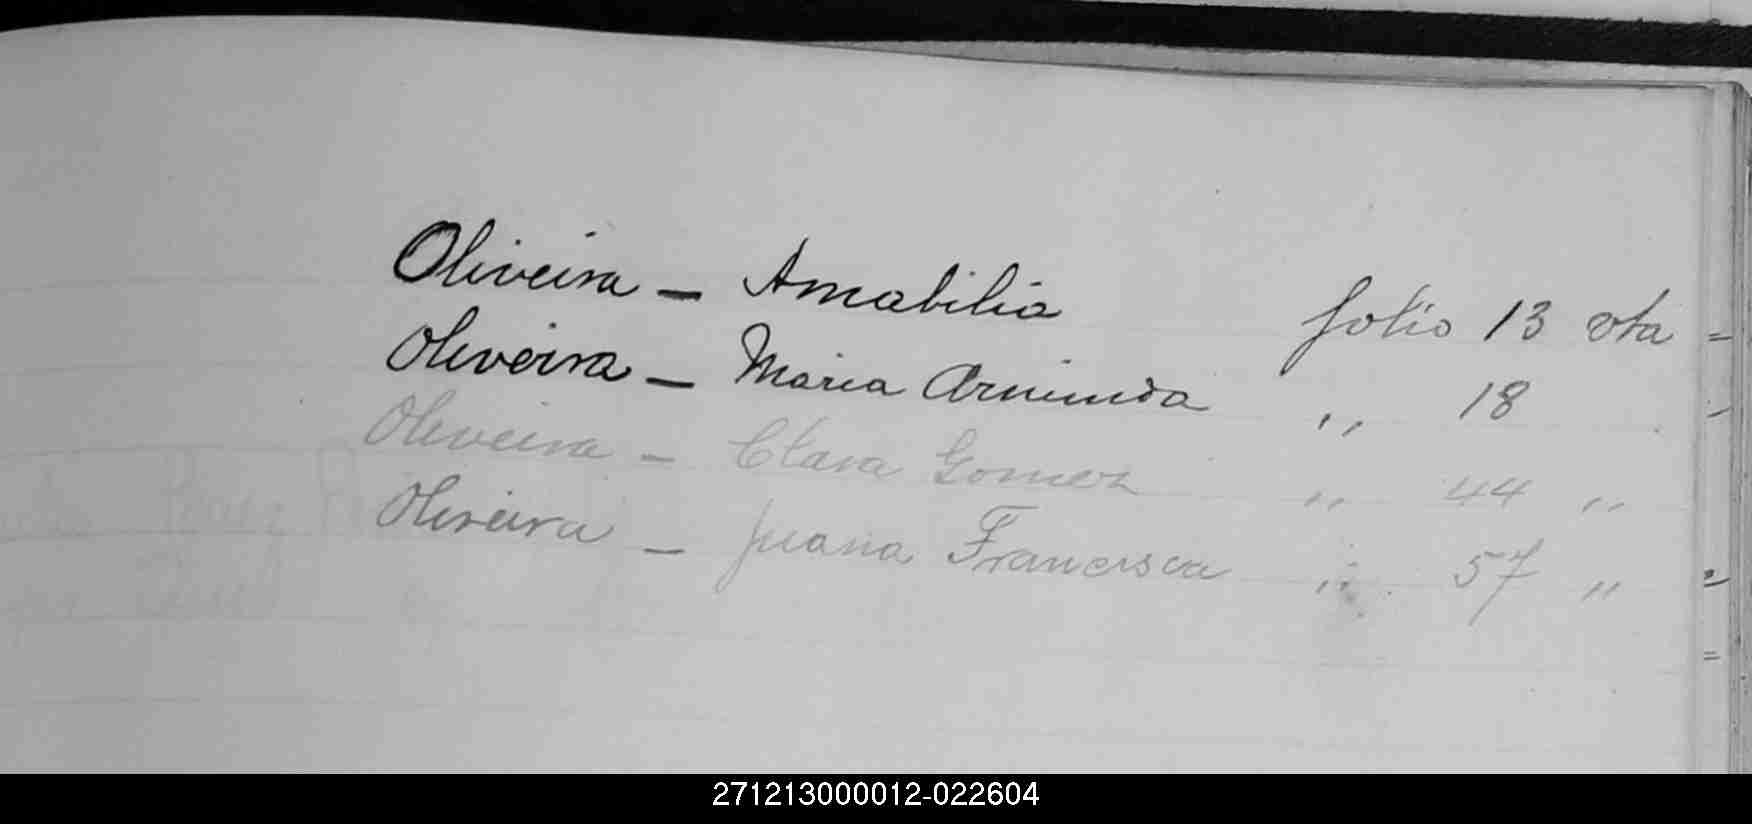 Oliveira - Amabilia folio 13 vta
Oliveira - Maria Arminda ,, 18
Oliveira - Clara Gomez ,, 44 ,,
Oliveira - Juana Francisca ,, 57 ,,
271213000012-022604